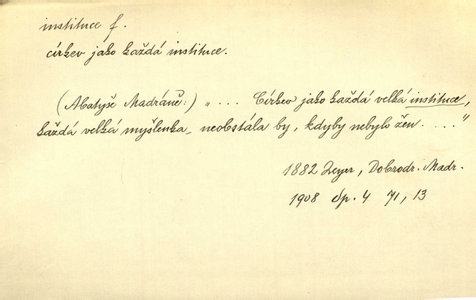 instituce f.
církev jako každá instituce.
(Abatyše Madráně:) „ ... Církev jako každá velká instituce,
každá velká myšlenka neobstála by, kdyby nebylo žen . ... "
1882 Zeyer, Dobrodr. Madr.
1908 dp. 4 71, 13